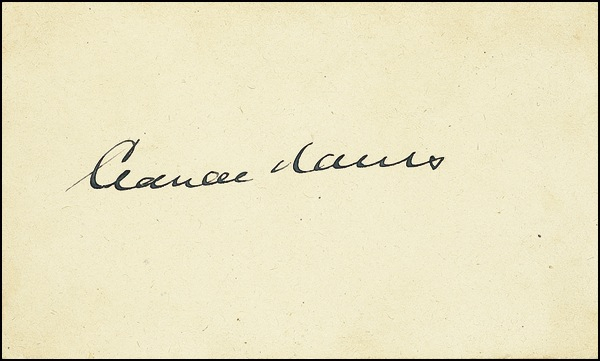 Claude Rains